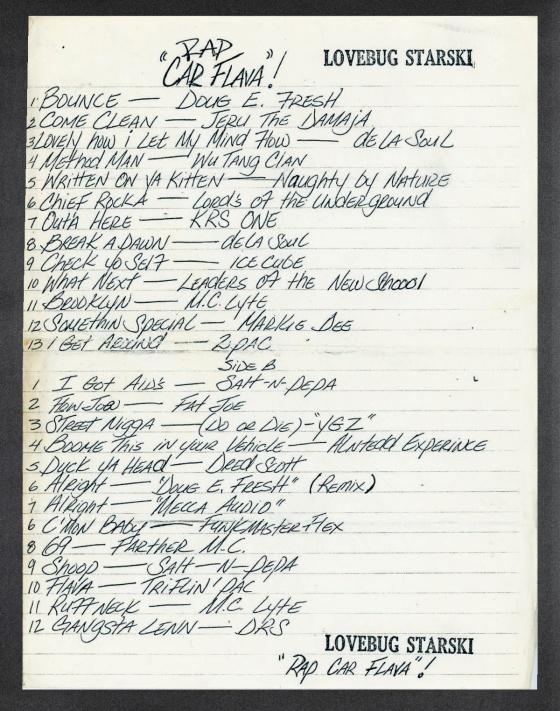 "RAP
CAR FLAVA"!
LOVEBUG STARSKI
1 BOUNCE — DOUG E. FRESH
2 COME CLEAN — JERU THE DAMAJA
3 LOVELY how i LET MY MIND FLOW — de LA SOUL
4 METHOD MAN — WU TANG CLAN
5 WRITTEN ON YA KITTEN — NAUGHTY by NATURE
6 CHIEF ROCKA — LORDS OF the UNDERGROUND
7 OUTA HERE — KRS ONE
8 BREAK A DAWN — de LA SOUL
9 CHECK YO SELF — ICE CUBE
10 WHAT NEXT — LEADERS OF the NEW SHOOOl
11 BROOKLYN — M.C. LYTE
12 SOMETHIN SPECIAL — MARKIE DEE
13 I GET AROUND — 2PAC
SIDE B
1 I GOT AIDS — SAlT-N-PEPA
2 FLOW JOE — FAT JOE
3 STREET NIGGA — (DO OR DIE) - "YGZ"
4 BOOME THIS IN YOUR VEHICLE — AlNTEDD EXPERINCE
5 DUCK YA HEAD — DRED SCOTT
6 Alright — "DOUG E. FRESH" (REMIX)
7 Alright — "MECCA AUDIO"
6 C'MON BABY — FUNKMASTER FLEX
8 69 — FATHER M.C.
9 SHOOP — SAlT-N-PEPA
10 FLAVA — TRIFLIN' PAC
11 RUFFNECK — M.C. LYTE
12 GANGSTA LENN — DRS
LOVEBUG STARSKI
"RAP CAR FLAVA"!